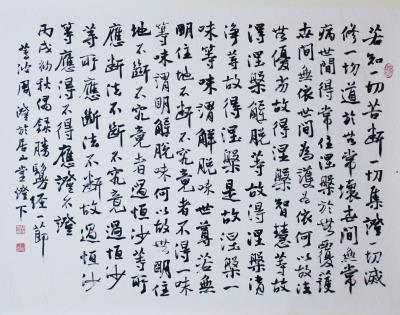 若知一切苦斷一切集證一切滅
修一切道於無常壞世間無常
病世間得常住涅槃於無覆護
世間無依世間為護為依何以故法
無優劣故得涅槃智慧等故
得涅槃解脫等故得涅槃清
淨等故得涅槃是故涅槃一
味等味謂解脫味世尊若無
明住地不斷不究竟者不得一味
等味謂明解脫味何以故無明住
地不斷不究竟者過恒沙等所
應斷法不斷不究竟過恒沙
等所應斷法不斷故過恒沙
等應得不得應證不證
丙戌初秋偶録勝鬘經一節
風 於居山堂 下